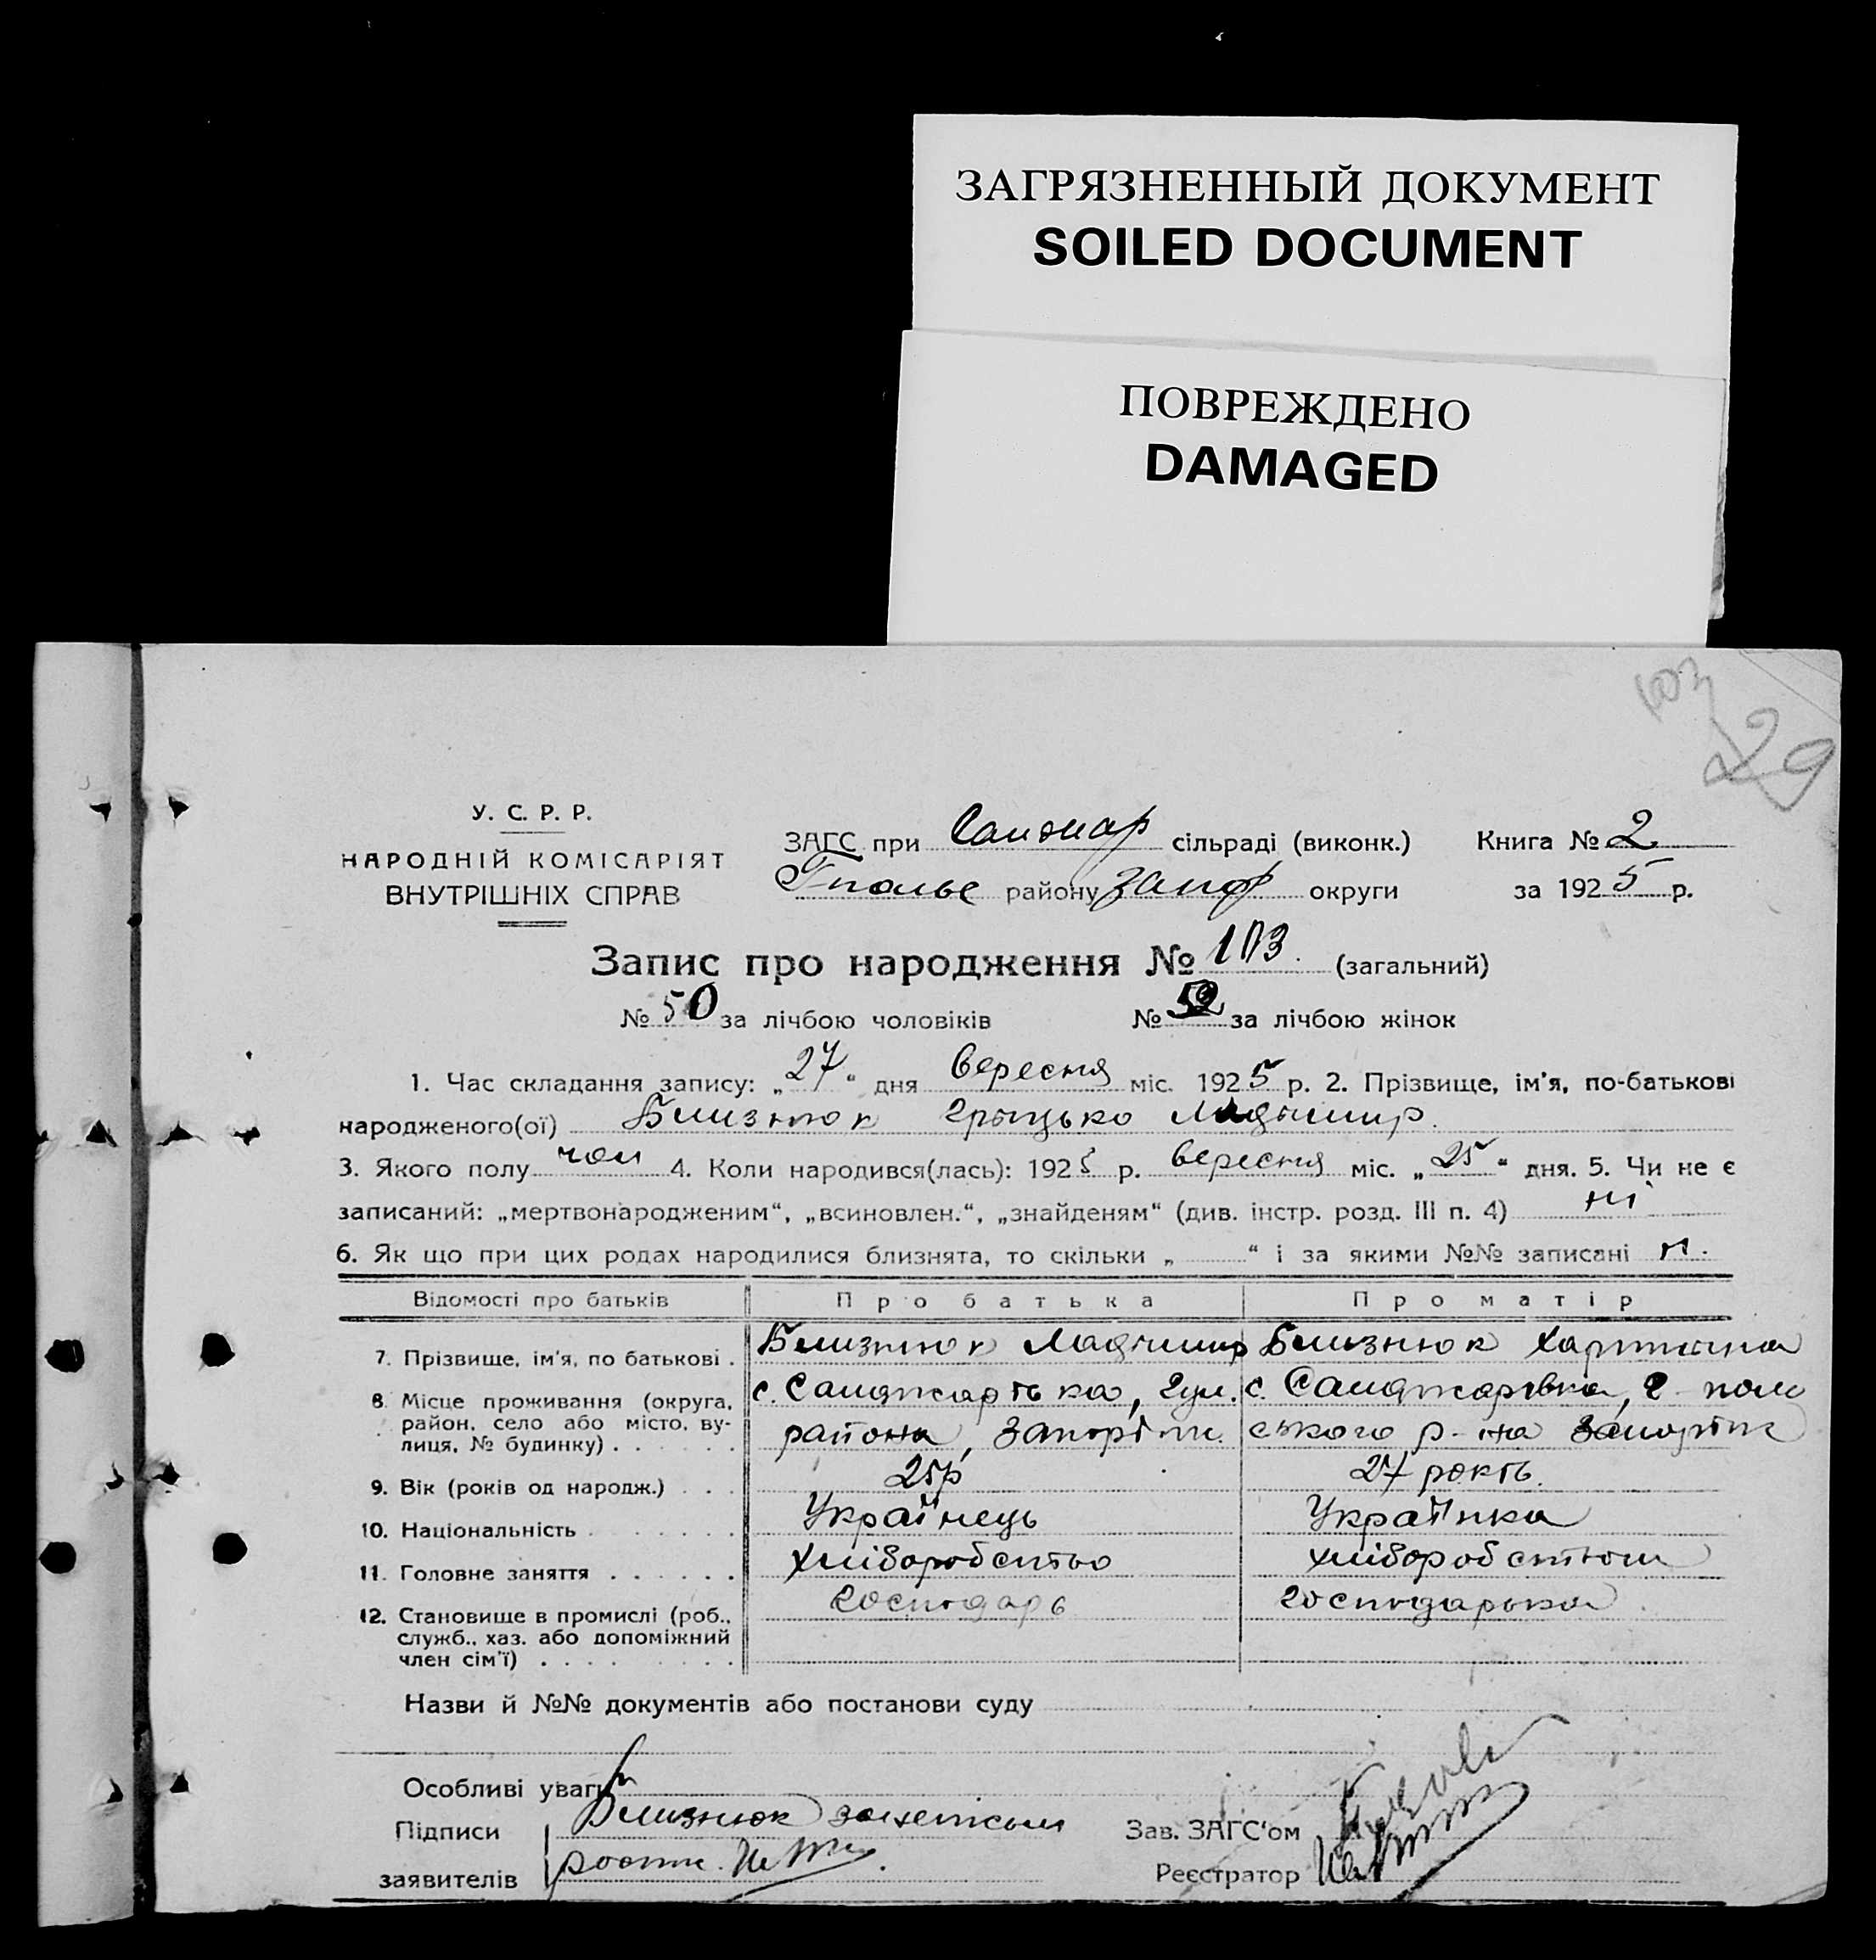 ЗАГРЯЗНЕННЫЙ ДОКУМЕНТ
SOILED DOCUMENT
ПОВРЕЖДЕНО
DAMAGED
103
29
У. С. Р. Р.
НАРОДНІЙ КОМІСАРІЯТ
ВНУТРІШНІХ СПРАВ
ЗАГС при Санжар сільраді (виконк.) Книга № 2
Гполье району Запор округи за 1925 р.
Запис про народження № 103. (загальний)
№ 50 за лічбою чоловіків № за лічбою жінок
1. Час складання запису: „27“ дня вересня міс. 1925 р. 2. Прізвище, ім'я, по-батькові
народженого(ої) Близнюк Грыцько
3. Якого полу чол 4. Коли народився(лась): 1925 р. вересня міс. „25“ дня. 5. Чи не є
записаний: „мертвонародженим“, „всиновлен.“, „знайденям“ (див. інстр. розд. III п. 4) ні
6. Як що при цих родах народилися близнята, то скільки „ “ і за якими №№ записані н.
Відомості про батьків Про батька Про матір
7. Прізвище, ім'я, по батькові . Близнюк Близнюк
8. Місце проживання (округа, район, село або місто, вулиця, № будинку) с. Санджарівка, Гул. с. Санджарівка, Г-поль
района, Запоріж. ського р-на Запоріж
9. Вік (років од народж.) . . . 25р 27 років.
10. Національність Українець Українка
11. Головне заняття Хліборобство хліборобством
12. Становище в промислі (роб., служб., хаз. або допоміжний член сім'ї) господарь господарька
Назви й №№ документів або постанови суду
Особливі уваги
Підписи Близнюк Зав. ЗАГС'ом
заявителів Реєстратор